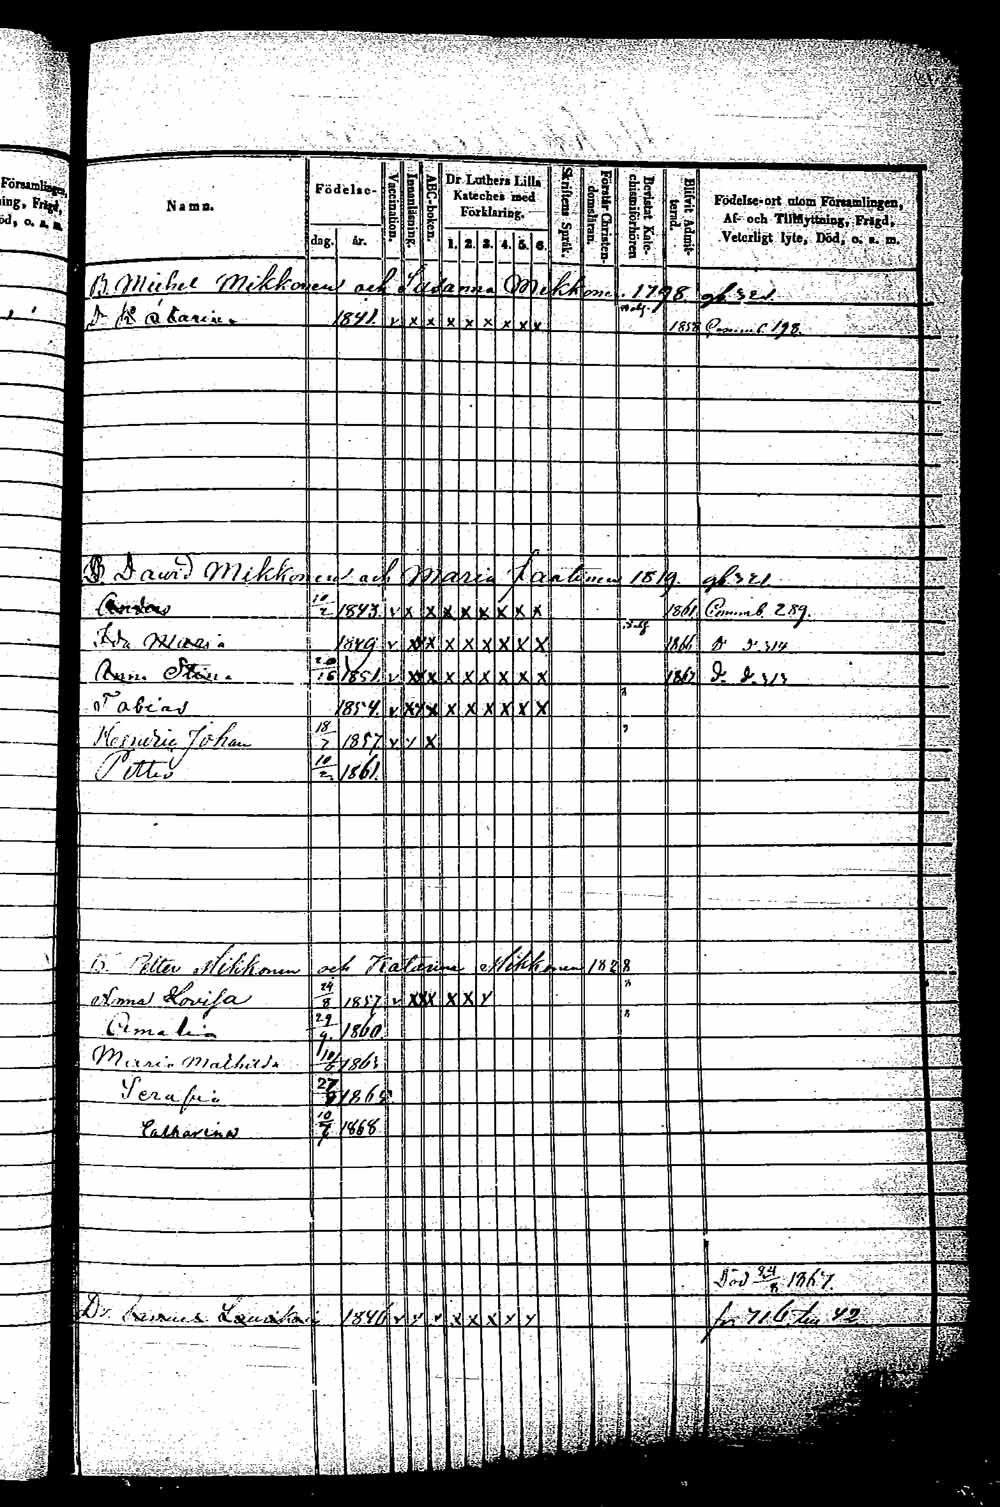 Församlingen,
ning, Frägd,
öd, o. s. m.
Namn.
Födelse-
dag. år.
Vaccination.
Innanläsning.
ABC-boken.
Dr Luthers Lilla
Kateches med
Förklaring.
1. 2. 3. 4. 5. 6.
Skriftens Språk.
Förstår Christen-
domsläran.
Bevistat Kate-
chismiförhören
Blifvit Admit-
terad.
Födelse-ort utom Församlingen,
Af- och Tillflyttning, Frägd,
Veterligt lyte, Död, o. s. m.
B. Michel Mikkonen och Susanna Mikkonen 1798.
D. Katarina 1841. v x x x x x x x x 1858 Commb. 198.
B. David Mikkonen och Maria 1819.
Andas 10/2 1843. v x x x x x x x x 1861 Commb. 289.
Ida Maria 1849 v x x x x x x x x 1866 D D. 314
Anna Stina 20/16 1851. v x x x x x x x x 1867 D. D. 313
Tobias 1854. v x x x x x x x x
Hendric Johan 18/7 1857 v v x
Petter 10/2 1861.
B. Petter Mikkonen och Katarina Mikkonen 1828
Anna Lovisa 24/8 1857 v x x x x x v
Amalia 29/9 1860.
Maria Mathilda 10/6 1863
Serafia 27/8 1865
Catharina 10/7 1868.
Död 24/8 1867.
Dr. 1846 v v v x x x v v